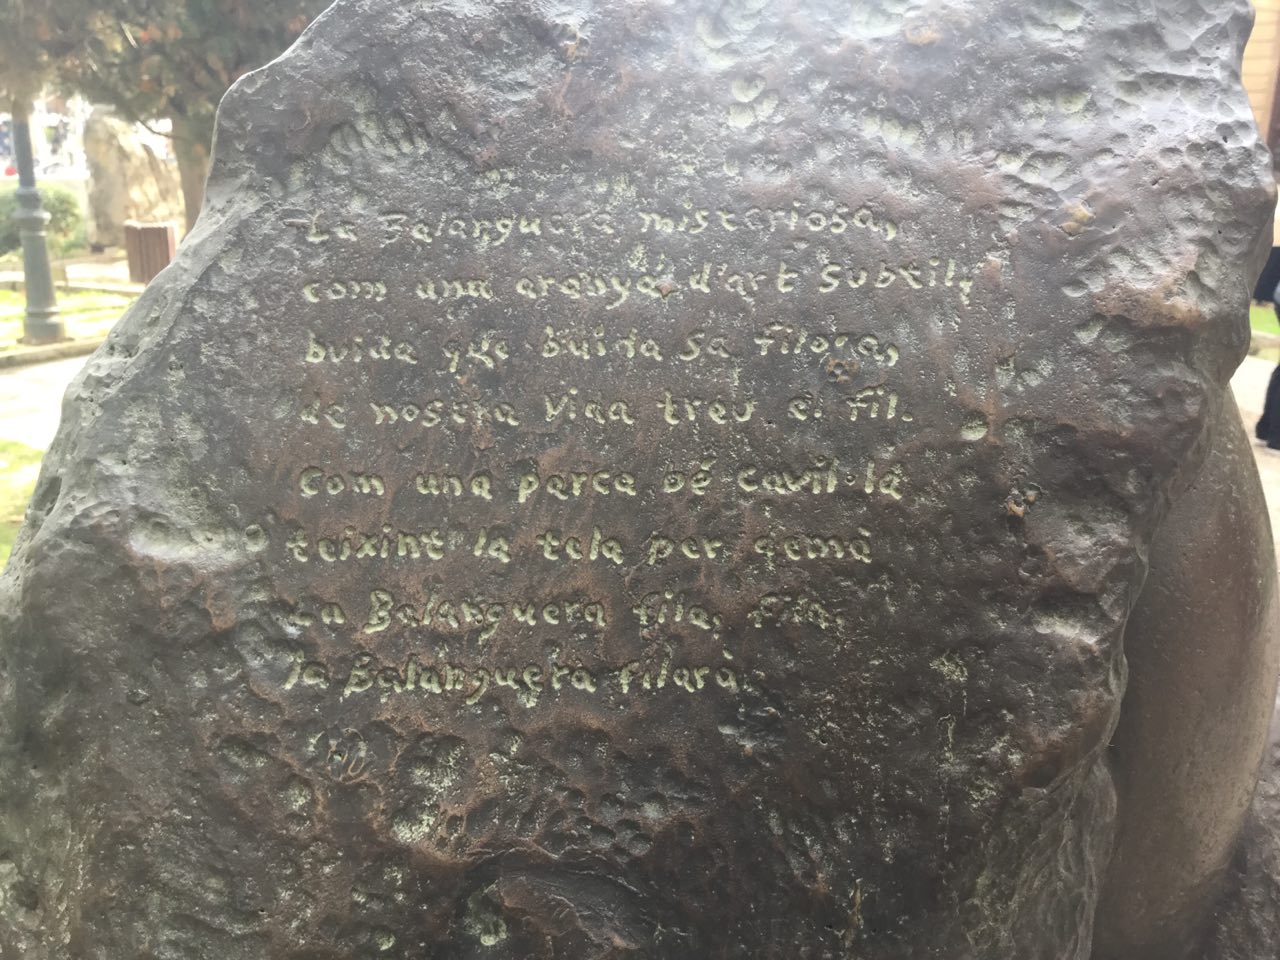 La Balanguera misteriosa,
com una aranya d'art subtil,
buida que buida sa filosa,
de nostra vida treu el fil.
Com una parca bé cavil·la
teixint la tela per demà
La Balanguera fila, fila,
la Balanguera filarà.